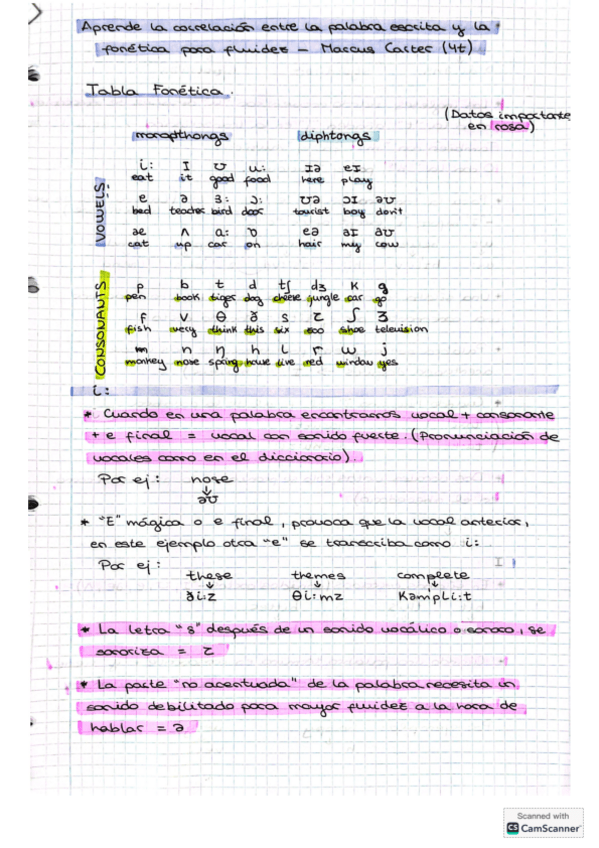 Aprende la correlación entre la palabra escrita y la
fonética para fluidez - Marcus Carter (4t)
Tabla Fonética.
(Datos importante
en rosa)
monopthongs diphtongs
VOWELS:
i: I ʊ u: Iə eI
eat it good food here play
e ə ɜ: ɔ: ʊə ɔI əʊ
bed teacher bird door tourist boy don't
æ ʌ a: ɒ eə aI aʊ
cat up car on hair my cow
CONSONANTS
p b t d tʃ dʒ k g
pen book tiger dog cheese jungle car go
f v θ ð s z ʃ ʒ
fish very think this six zoo shoe television
m n ŋ h l r w j
monkey nose spring house live red window yes
i:
* Cuando en una palabra encontramos vocal + consonante
+ e final = vocal con sonido fuerte. (Pronunciación de
vocales como en el diccionario).
Por ej: nose
↓
əʊ
* "E" mágica o e final, provoca que la vocal anterior,
en este ejemplo otra "e" se transcriba como i:
Por ej:
these themes complete
↓ ↓ ↓
ði:z θi:mz Kəm'pli:t
* La letra "s" después de un sonido vocálico o sonoro, se
sonoriza = z
* La parte "no acentuada" de la palabra necesita un
sonido debilitado para mayor fluidez a la hora de
hablar = ə
Scanned with
CS CamScanner